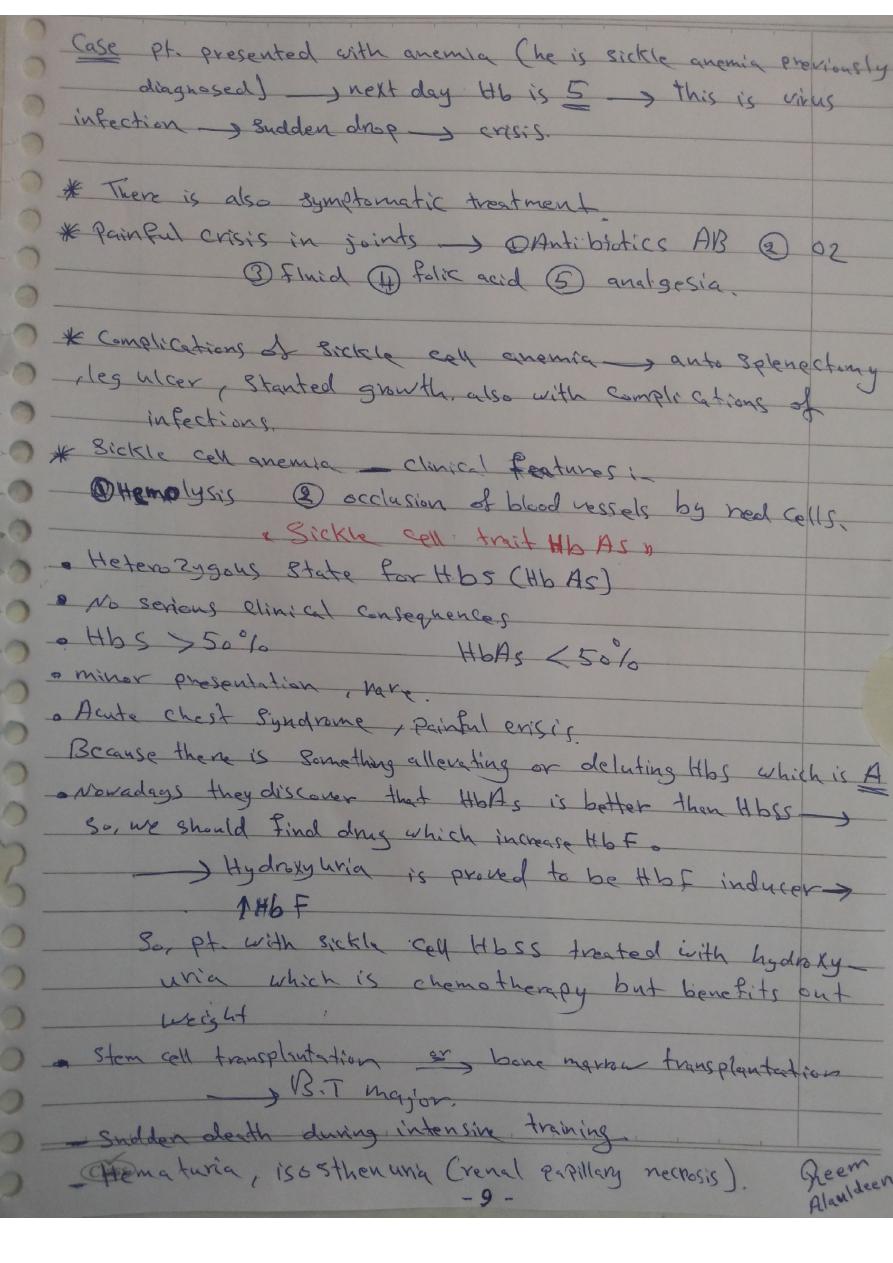 Case pt. presented with anemia (he is sickle anemia previously
diagnosed) → next day Hb is 5 → this is virus
infection → sudden drop → crisis.
* There is also symptomatic treatment.
* Painful crisis in joints → ① Antibiotics AB ② O2
③ fluid ④ folic acid ⑤ analgesia.
* Complications of sickle cell anemia → auto splenectomy
, leg ulcer, stanted growth, also with complications of
infections.
* Sickle cell anemia — clinical features :-
① Hemolysis ② occlusion of blood vessels by red cells.
" Sickle cell trait Hb As "
• Heterozygous state for Hbs (Hb As)
• No serious clinical consequences
• Hb S > 50% HbAs < 50%
• minor presentation, rare.
• Acute chest syndrome, painful crisis.
Because there is something allevating or deluting Hbs which is A
• Nowadays they discover that HbAs is better then Hbss →
So, we should find drug which increase Hb F.
→ Hydroxyuria is proved to be HbF inducer →
↑ Hb F
So, pt. with sickle cell Hbss treated with hydroxy-
uria which is chemotherapy but benefits out
weight
- Stem cell transplantation or → bone marrow transplantation
→ B.T major.
- Sudden death during intensive training.
- Hematuria, isosthenuria (renal papillary necrosis).
Reem
Alauldeen
- 9 -